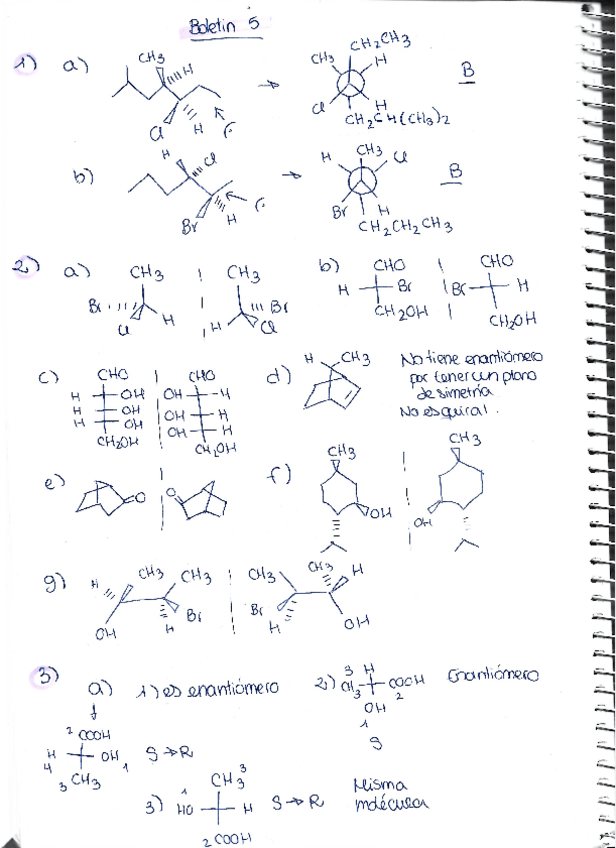 Boletin 5
1) a) CH3 H Cl H CH3 CH2CH3 H Cl H CH2CH(CH3)2 B
b) H Cl Br H H CH3 Cl Br H CH2CH2CH3 B
2) a) CH3 Br Cl H CH3 Br H Cl
b) CHO H Br CH2OH CHO Br H CH2OH
c) CHO H OH H OH H OH CH2OH CHO OH H OH H OH H CH2OH
d) H CH3 No tiene enantiómero
por tener un plano
de simetría
No es quiral.
e) O O
f) CH3 OH CH3 OH
g) H CH3 CH3 OH H Br CH3 CH3 H Br H OH
3) a) 1) es enantiómero 2) 3 H CH3 COOH 2 OH 1 S Enantiómero
2 COOH H 4 OH 1 3 CH3 S→R
3) CH3 3 1 HO H 2 COOH S→R Misma
molécula